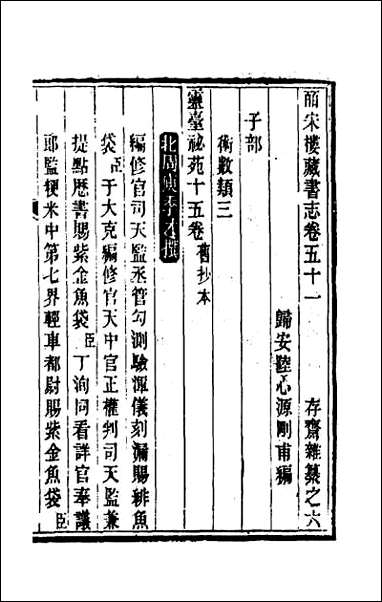 皕宋樓藏書志卷五十一 存齋雜纂之六
歸安陸心源剛甫編
子部
術數類三
靈臺祕苑十五卷舊抄本
北周庾季才撰
編修官司天監丞管勾測驗渾儀刻漏賜緋魚
袋臣于大克編修官天中官正權判司天監兼
提點歷書賜紫金魚袋臣丁洵同看詳官奉議
郎監粳米中第七界輕車都尉賜紫金魚袋臣